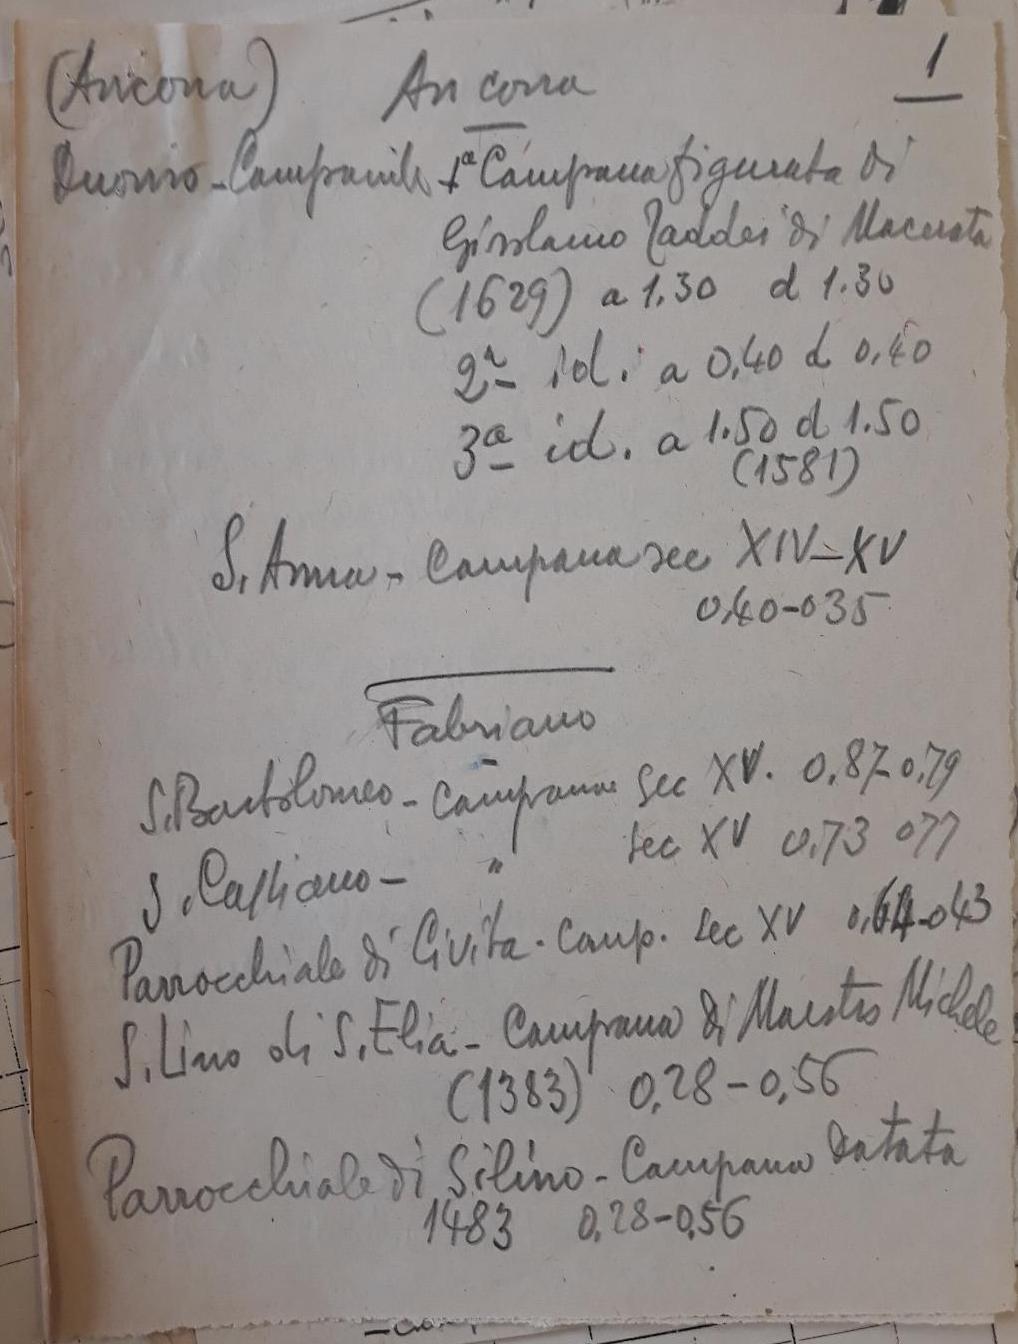 1
(Ancona) Ancona
Duomo - Campanile 1ª Campana figurata di
Girolamo Taddei di Macerata
(1629) a 1.30 d 1.30
2ª id. a 0,40 d 0,40
3ª id. a 1.50 d 1.50
(1581)
S. Anna - Campana sec XIV-XV
0,40-035
Fabriano
S. Bartolomeo - Campana Sec XV. 0,87-0,79
S. Cassiano - " Sec XV 0,73 077
Parrocchiale di Civita. Camp. Sec XV 0,64-043
S. Lino di S. Elia - Campana di Maestro Michele
(1383) 0,28-0,56
Parrocchiale di Silino - Campana datata
1483 0,28-0,56